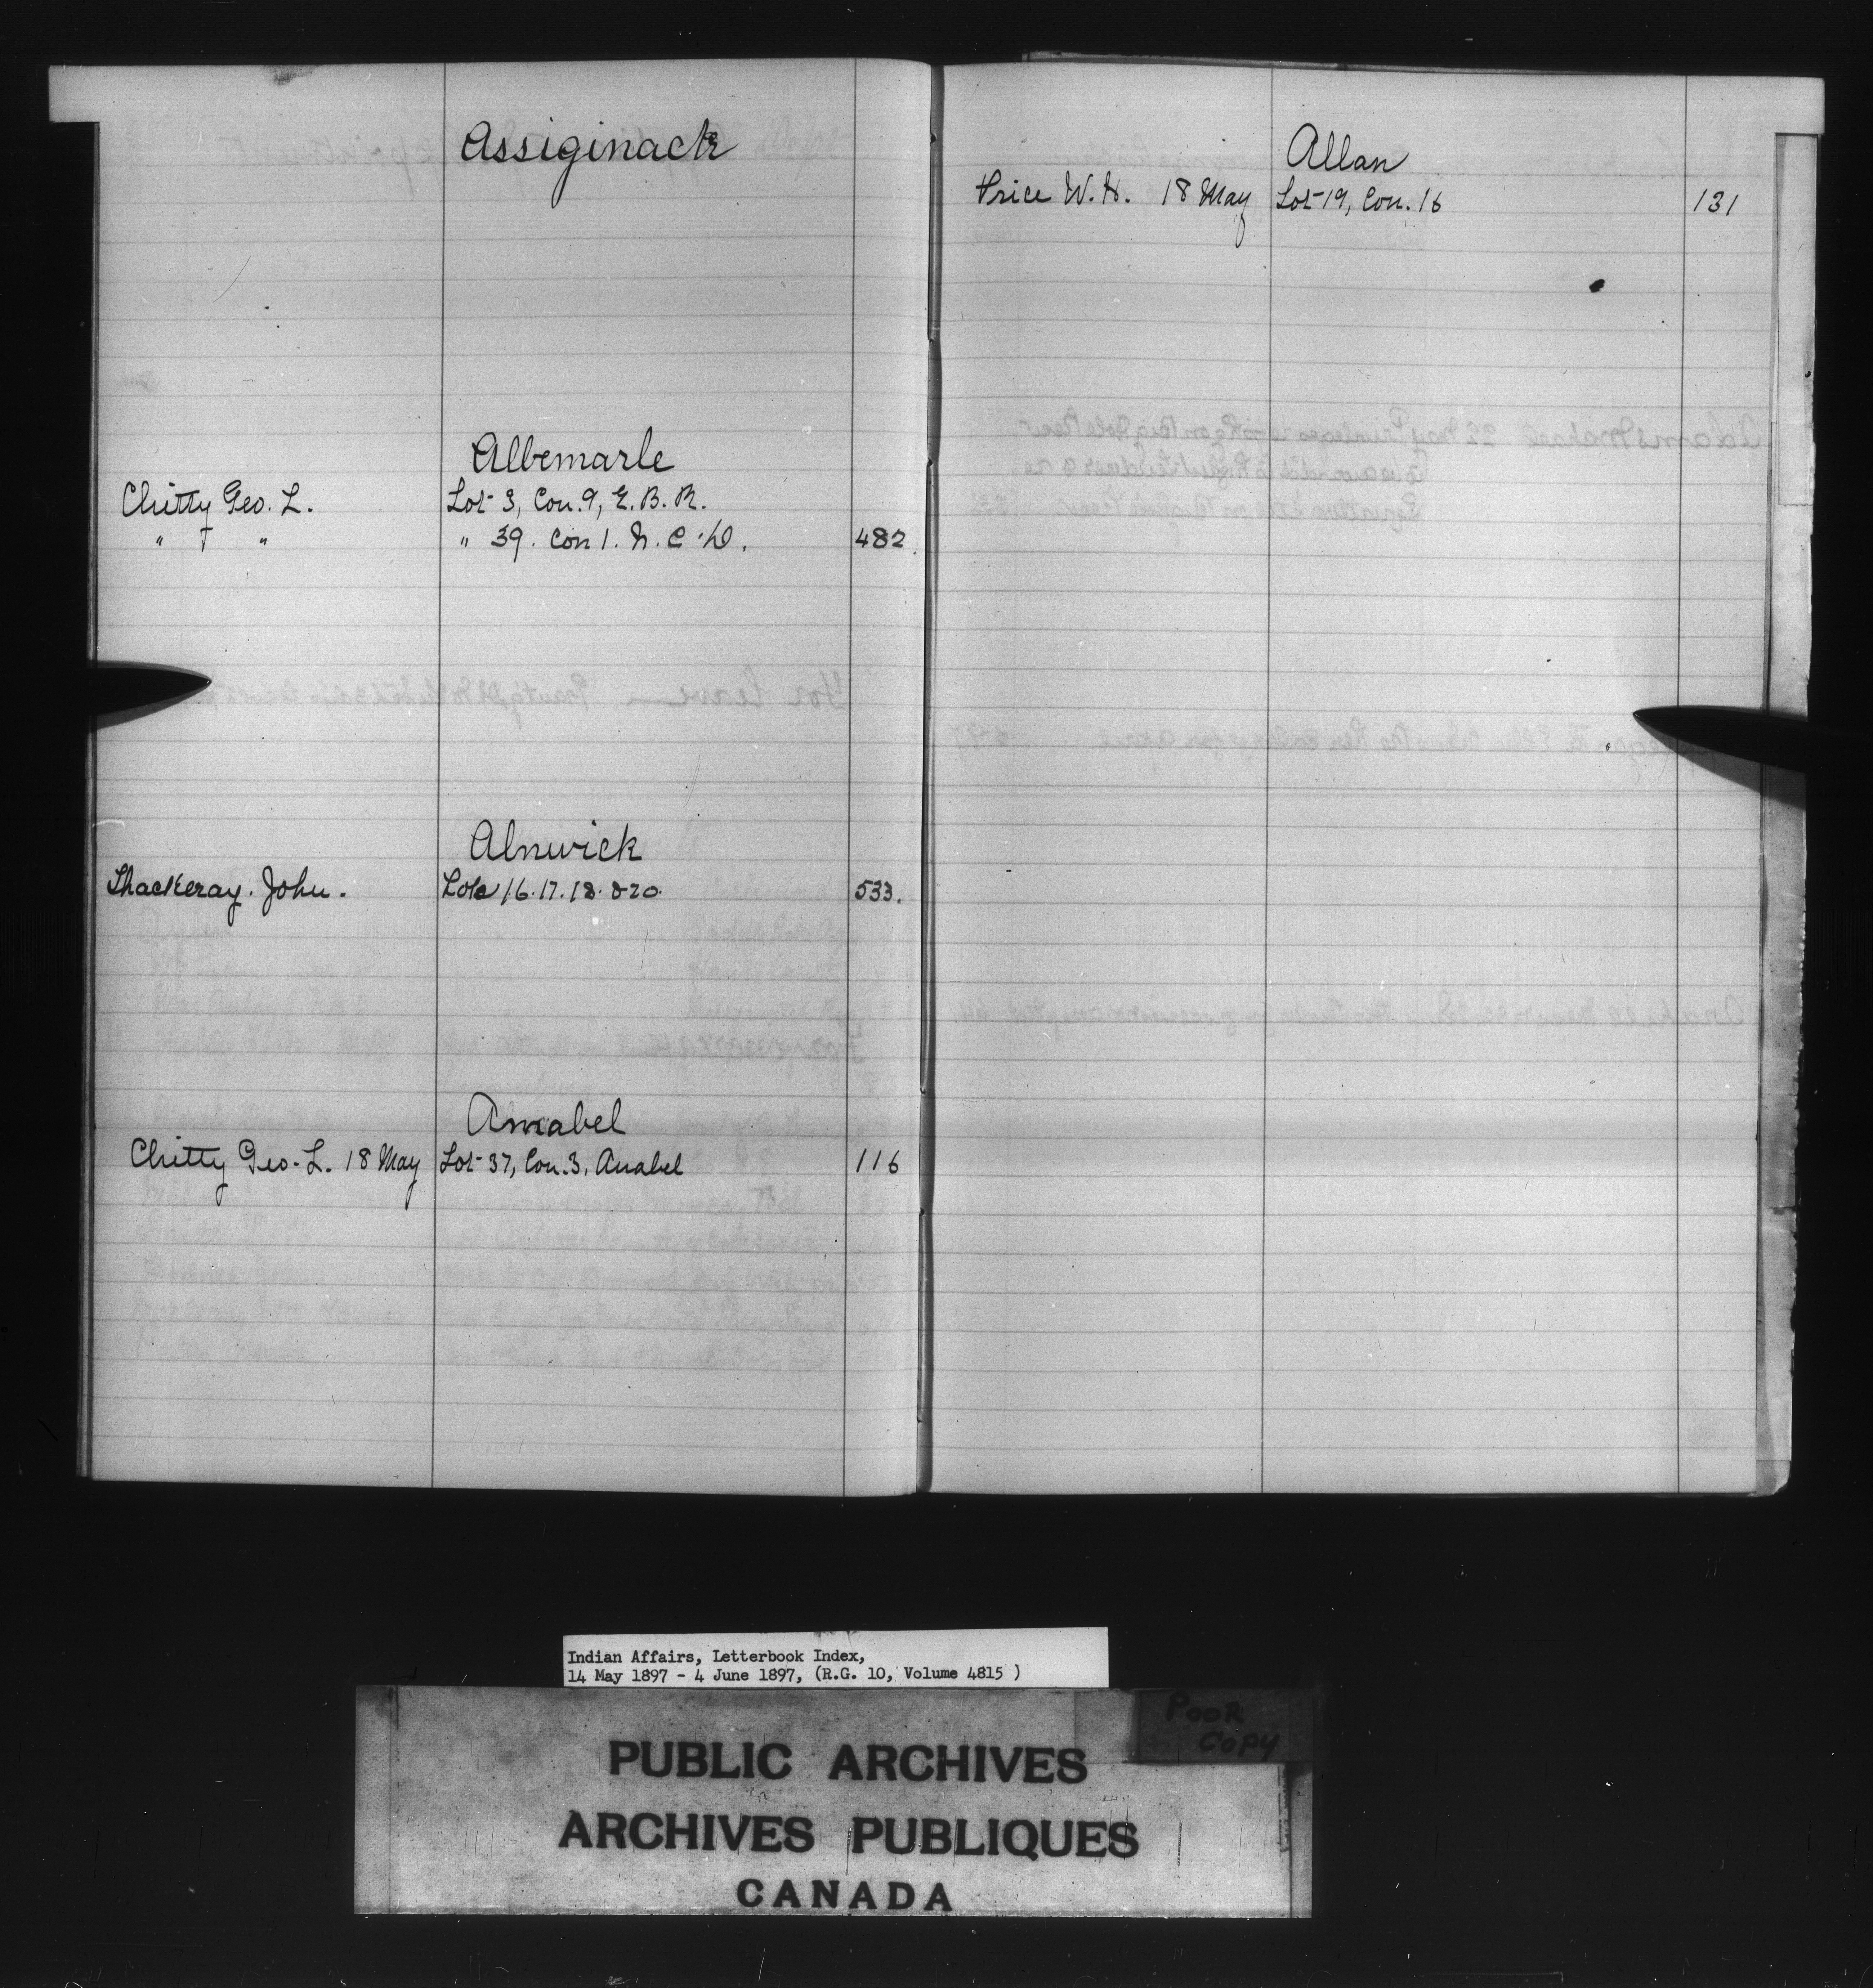 Assiginack
Albemarle
Chitty Geo. L. Lot 3, Con. 9, E. B. R.
" " " 39. Con 1. N. C. D. 482
Alnwick
Thackeray. John. Lots 16. 17. 18. & 20. 533.
Amabel
Chitty Geo. L. 18 May Lot 37, Con. 3, Amabel 116
Allan
Price W. H. 18 May Lot 19, Con. 16 131
Indian Affairs, Letterbook Index,
14 May 1897 - 4 June 1897, (R.G. 10, Volume 4815 )
POOR
COPY
PUBLIC ARCHIVES
ARCHIVES PUBLIQUES
CANADA